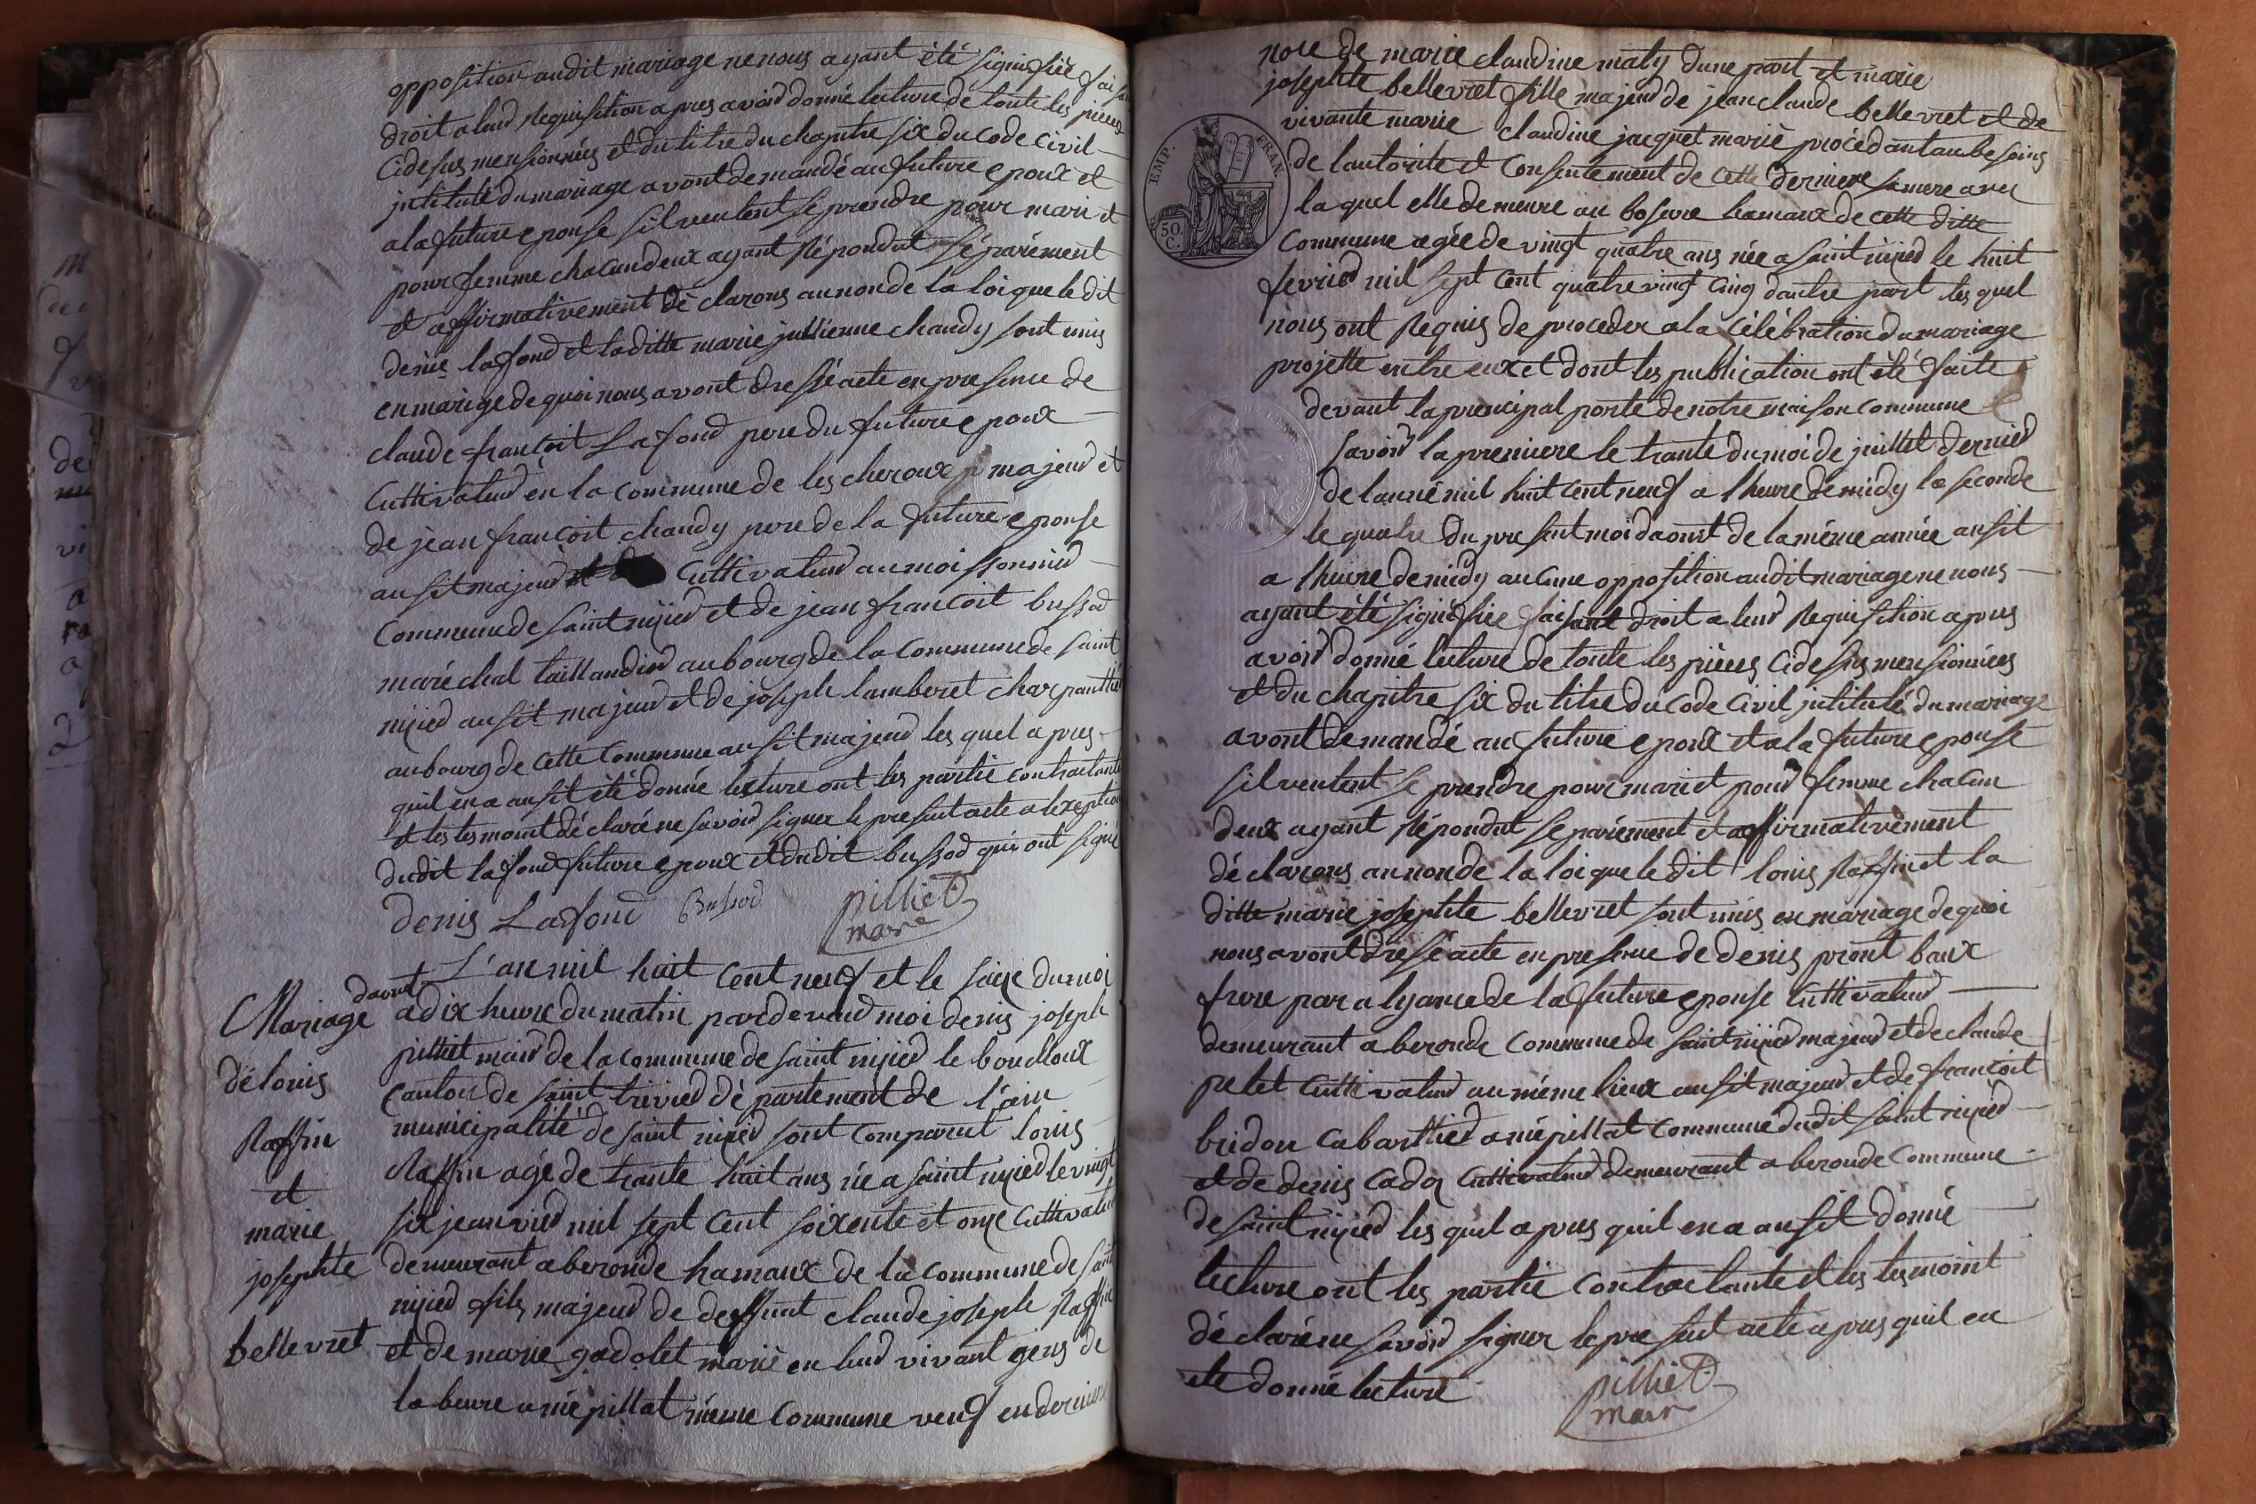 opposition audit mariage ne nous ayant été signifiée faisant
droit a leur Requisition apres avoir donné lecture de toute les pieces
cidesus mensionnées et du titre du chapitre six du code civil
jntitulé du mariage avont demandé au future epoux et
a la future epouse sil veulent se prendre pour mari et
pour femme chacun deux ayant Répondut séparément
et affirmativement Déclarons au nom de la loi que le dit
denis lafond et laditte marie jullienne chaudy sont unis
en marige de quoi nous avont dressé acte en presence de
claude francoit Lafond pere du future epoux
Cultivateur en la commune de les cheroux majeur et
de jean francoit chaudy pere de la future epouse
ausit majeur Cultivateur au moissonnier
Commune de saint nijier et de jean francoit bussod
maréchal taillandier au bourg de la Commune de saint
nijier ausit majeur et de joseph lamberet charpantier
au bourg de cette Commune ausit majeur les quel apres
quil en a ausit été donné lecture ont les partie contractante
et les tesmoint déclaré ne savoir signer le present acte a lexeption
dudit lafond future epoux et dudit bussod qui ont signé
denis Lafond Bussod pilliet
maire
L'an mil huit Cent neuf et le seize du moi
daout
Mariage
de louis
Raffin
et
marie
josephte
bellevret
a dix heure du matin pardevand moi denis joseph
pilliet mair de la commune de saint nijier le bouchoux
Canton de saint trivier département de l'ain
municipalité de saint nijier sont comparut louis
Raffin agé de trante huit ans née a saint nijier le vingt
six jeanvier mil sept Cent soixente et onze Cultivateur
demeurant a beronde hamaux de la commune de saint
nijier fils majeur de deffunt claude joseph Raffin
et de marie gadolet marié en leur vivant gens de
labeure a mépillat même Commune veuf en derniere
noce de marie claudine maty dune part et marie
josephte bellevret fille majeur de jean claude bellevret et de
vivante marie claudine jacquet marié procédant au besoins
de lautorite et Consentement de cette derniere sa mere avec
la quel elle demeure au hamaux de cette ditte
Commune agée de vingt quatre ans née a saint nijier le huit
fevrier mil sept Cent quatre vingt Cinq dautre part les quel
nous ont Requis de proceder a la Célébration du mariage
projette entre eux et dont les publication ont été faite
devant la principal porte de notre maison commune
savoir la premiere le trante du moi de juillet dernier
de lanné mil huit Cent neuf a l'heure de midy la seconde
le quatre du present moi daout de la même année ausit
a lheure de midy aucune opposition audit mariage ne nous
ayant été signifiée faisant droit a leur Requisition apres
avoir donné lecture de toute les pieces Cidesus mensionnées
et du chapitre six du titre du Code Civil jntitulé du mariage
avont demandé au future epoux et a la future epouse
sil veulent se prendre pour mari et pour femme chacun
deux ayant Répondut separément et affirmativement
déclarons au nom de la loi que le dit louis Raffin et la
ditte marie josephte bellevret sont unis en mariage de quoi
nous avont dressé acte en presence de denis pront baux
frere par alyance de la future epouse Cultivateur
demeurant a beronde Commune de saint nijier majeur et de claude
pelet Cultivateur au même lieux ausit majeur et de francoit
bridon Cabarttier a mépillat Commune dudit saint nijier
et de denis Cadoz Cultivateur demeurant a beronde Commune
de saint nijier les quel apres quil en a ausit donné
lecture ont les partie Contractante et les tesmoint
déclaré ne savoir signer le present acte apres quil en
ete donné lecture pilliet
mair
EMP. FRAN.
50
C.